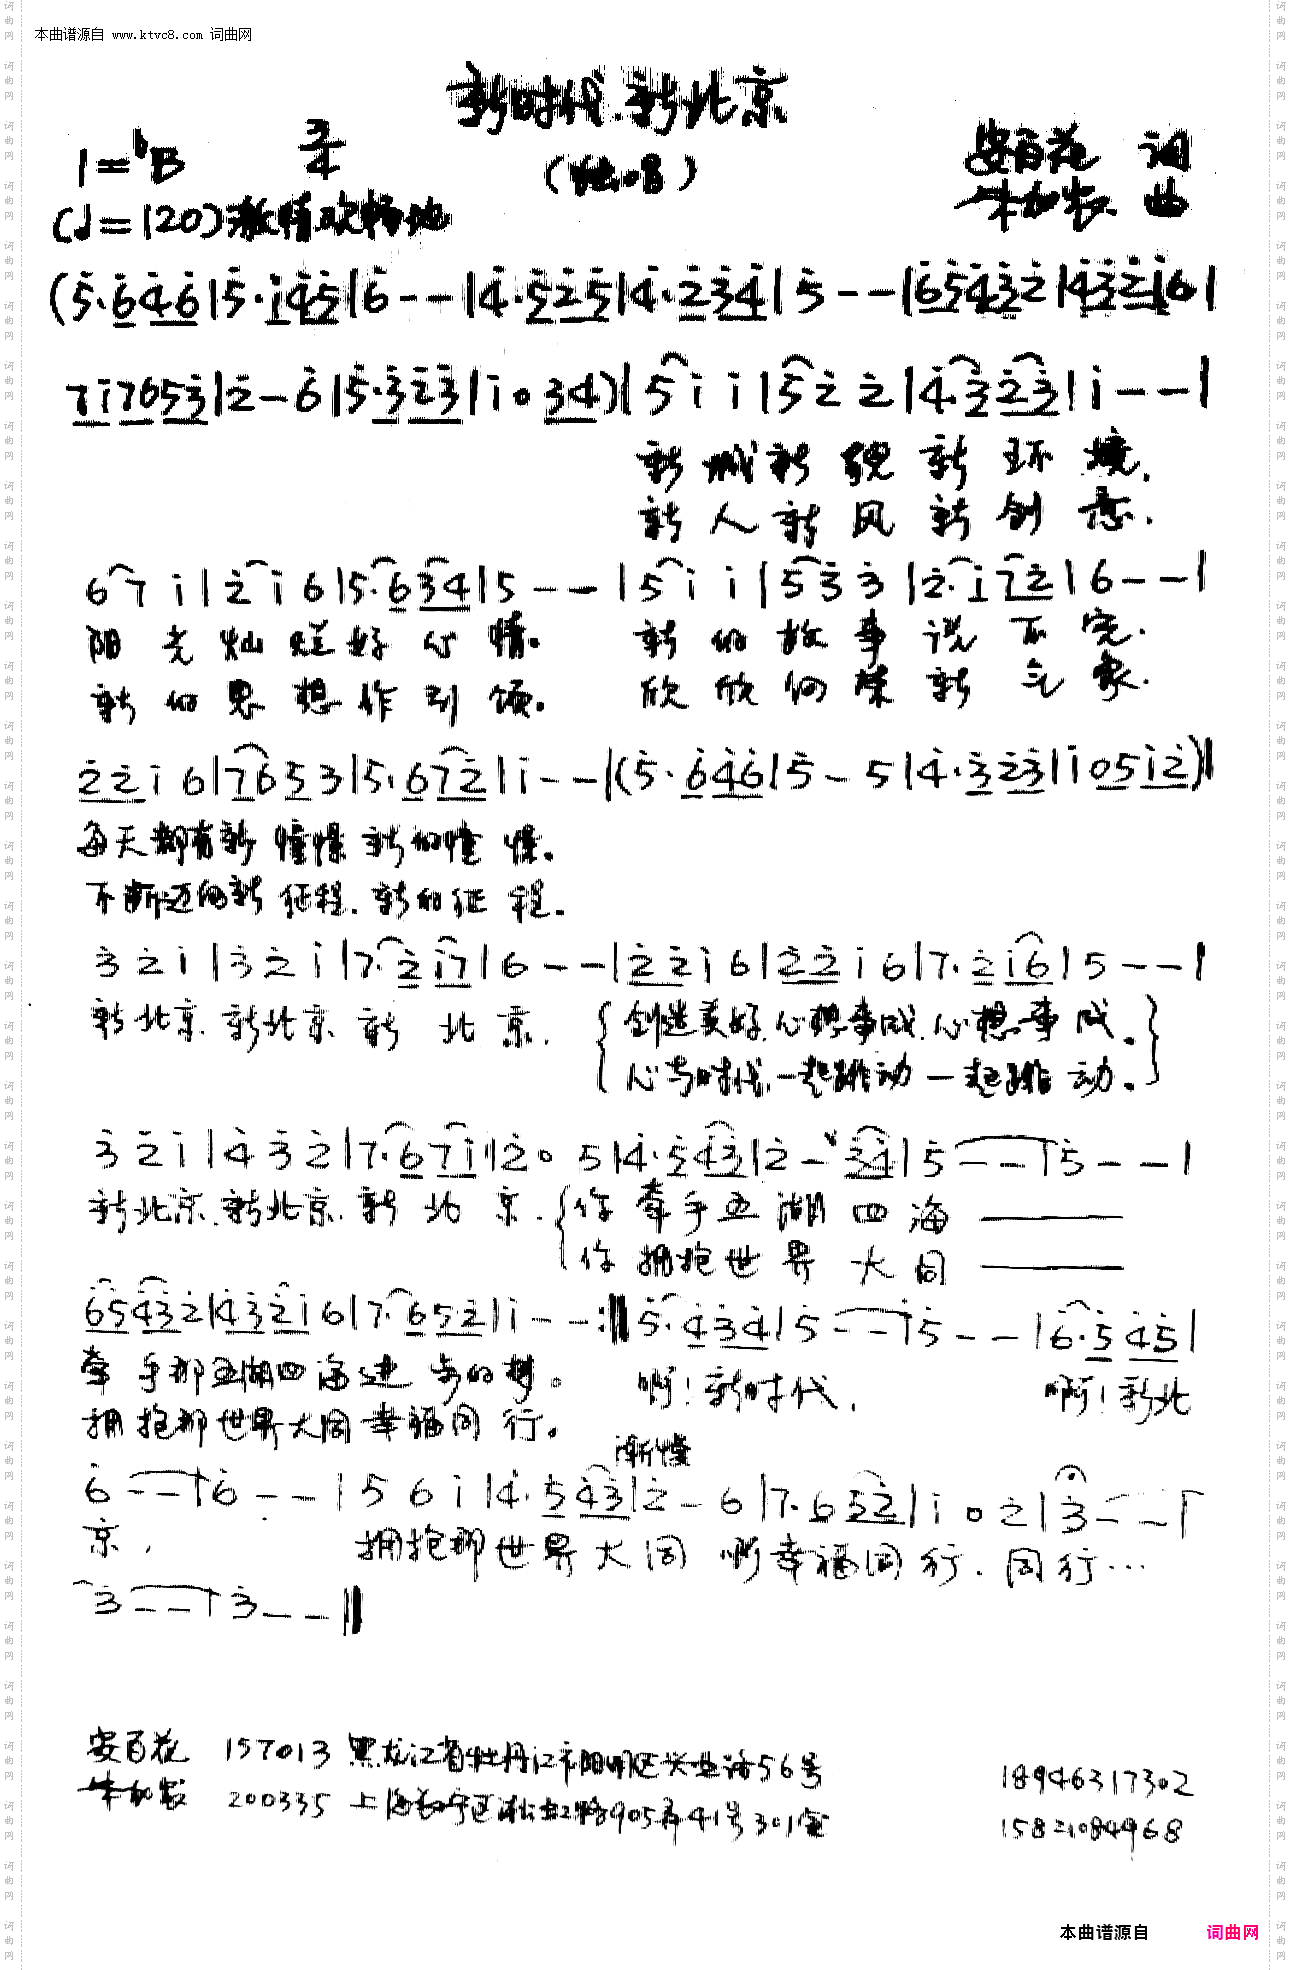 本曲谱源自 www.ktvc8.com 词曲网
新时代.新北京
1=♭B 3/4 (独唱) 安百花 词
(♩=120)激情欢畅地 朱加农 曲
(5·646|5·145|6--|4·525|4·234|5--|65432|43216|
717653|2-6|5·323|1034)|511|522|4·323|1--|
新城新貌新环境,
新人新风新创意.
671|216|5·634|5--|511|533|2·172|6--|
阳光灿烂好心情。 新的故事说不完.
新的思想作引领。 欣欣向荣新气象.
2216|7653|5·672|1--|(5·646|5-5|4·323|10512)‖
每天都有新憧憬 新的憧憬。
不断迈向新征程.新的征程。
321|321|7·217|6--|2216|2216|7·216|5--|
新北京.新北京.新北京. {创造美好.心想事成.心想事成。}
{心与时代.一起跳动一起跳动。}
321|432|7·671|20 5|4·543|2-34|5--|5--|
新北京.新北京.新北京.{你牵手五湖四海——
{你拥抱世界大同——
65432|43216|7·652|1--:‖5·434|5--|5--|6·545|
牵手那五湖四海进步的梦。 啊!新时代, 啊!新北
拥抱那世界大同幸福同行。
渐慢
6--|6--|561|4·543|2-6|7·652|102|3--|
京, 拥抱那世界大同 啊幸福同行.同行…
3--|3--‖
安百花 157013 黑龙江省牡丹江市阳明区兴业路56号 18946317302
朱加农 200335 上海长宁区淞虹路905弄41号301室 15821084968
本曲谱源自 词曲网